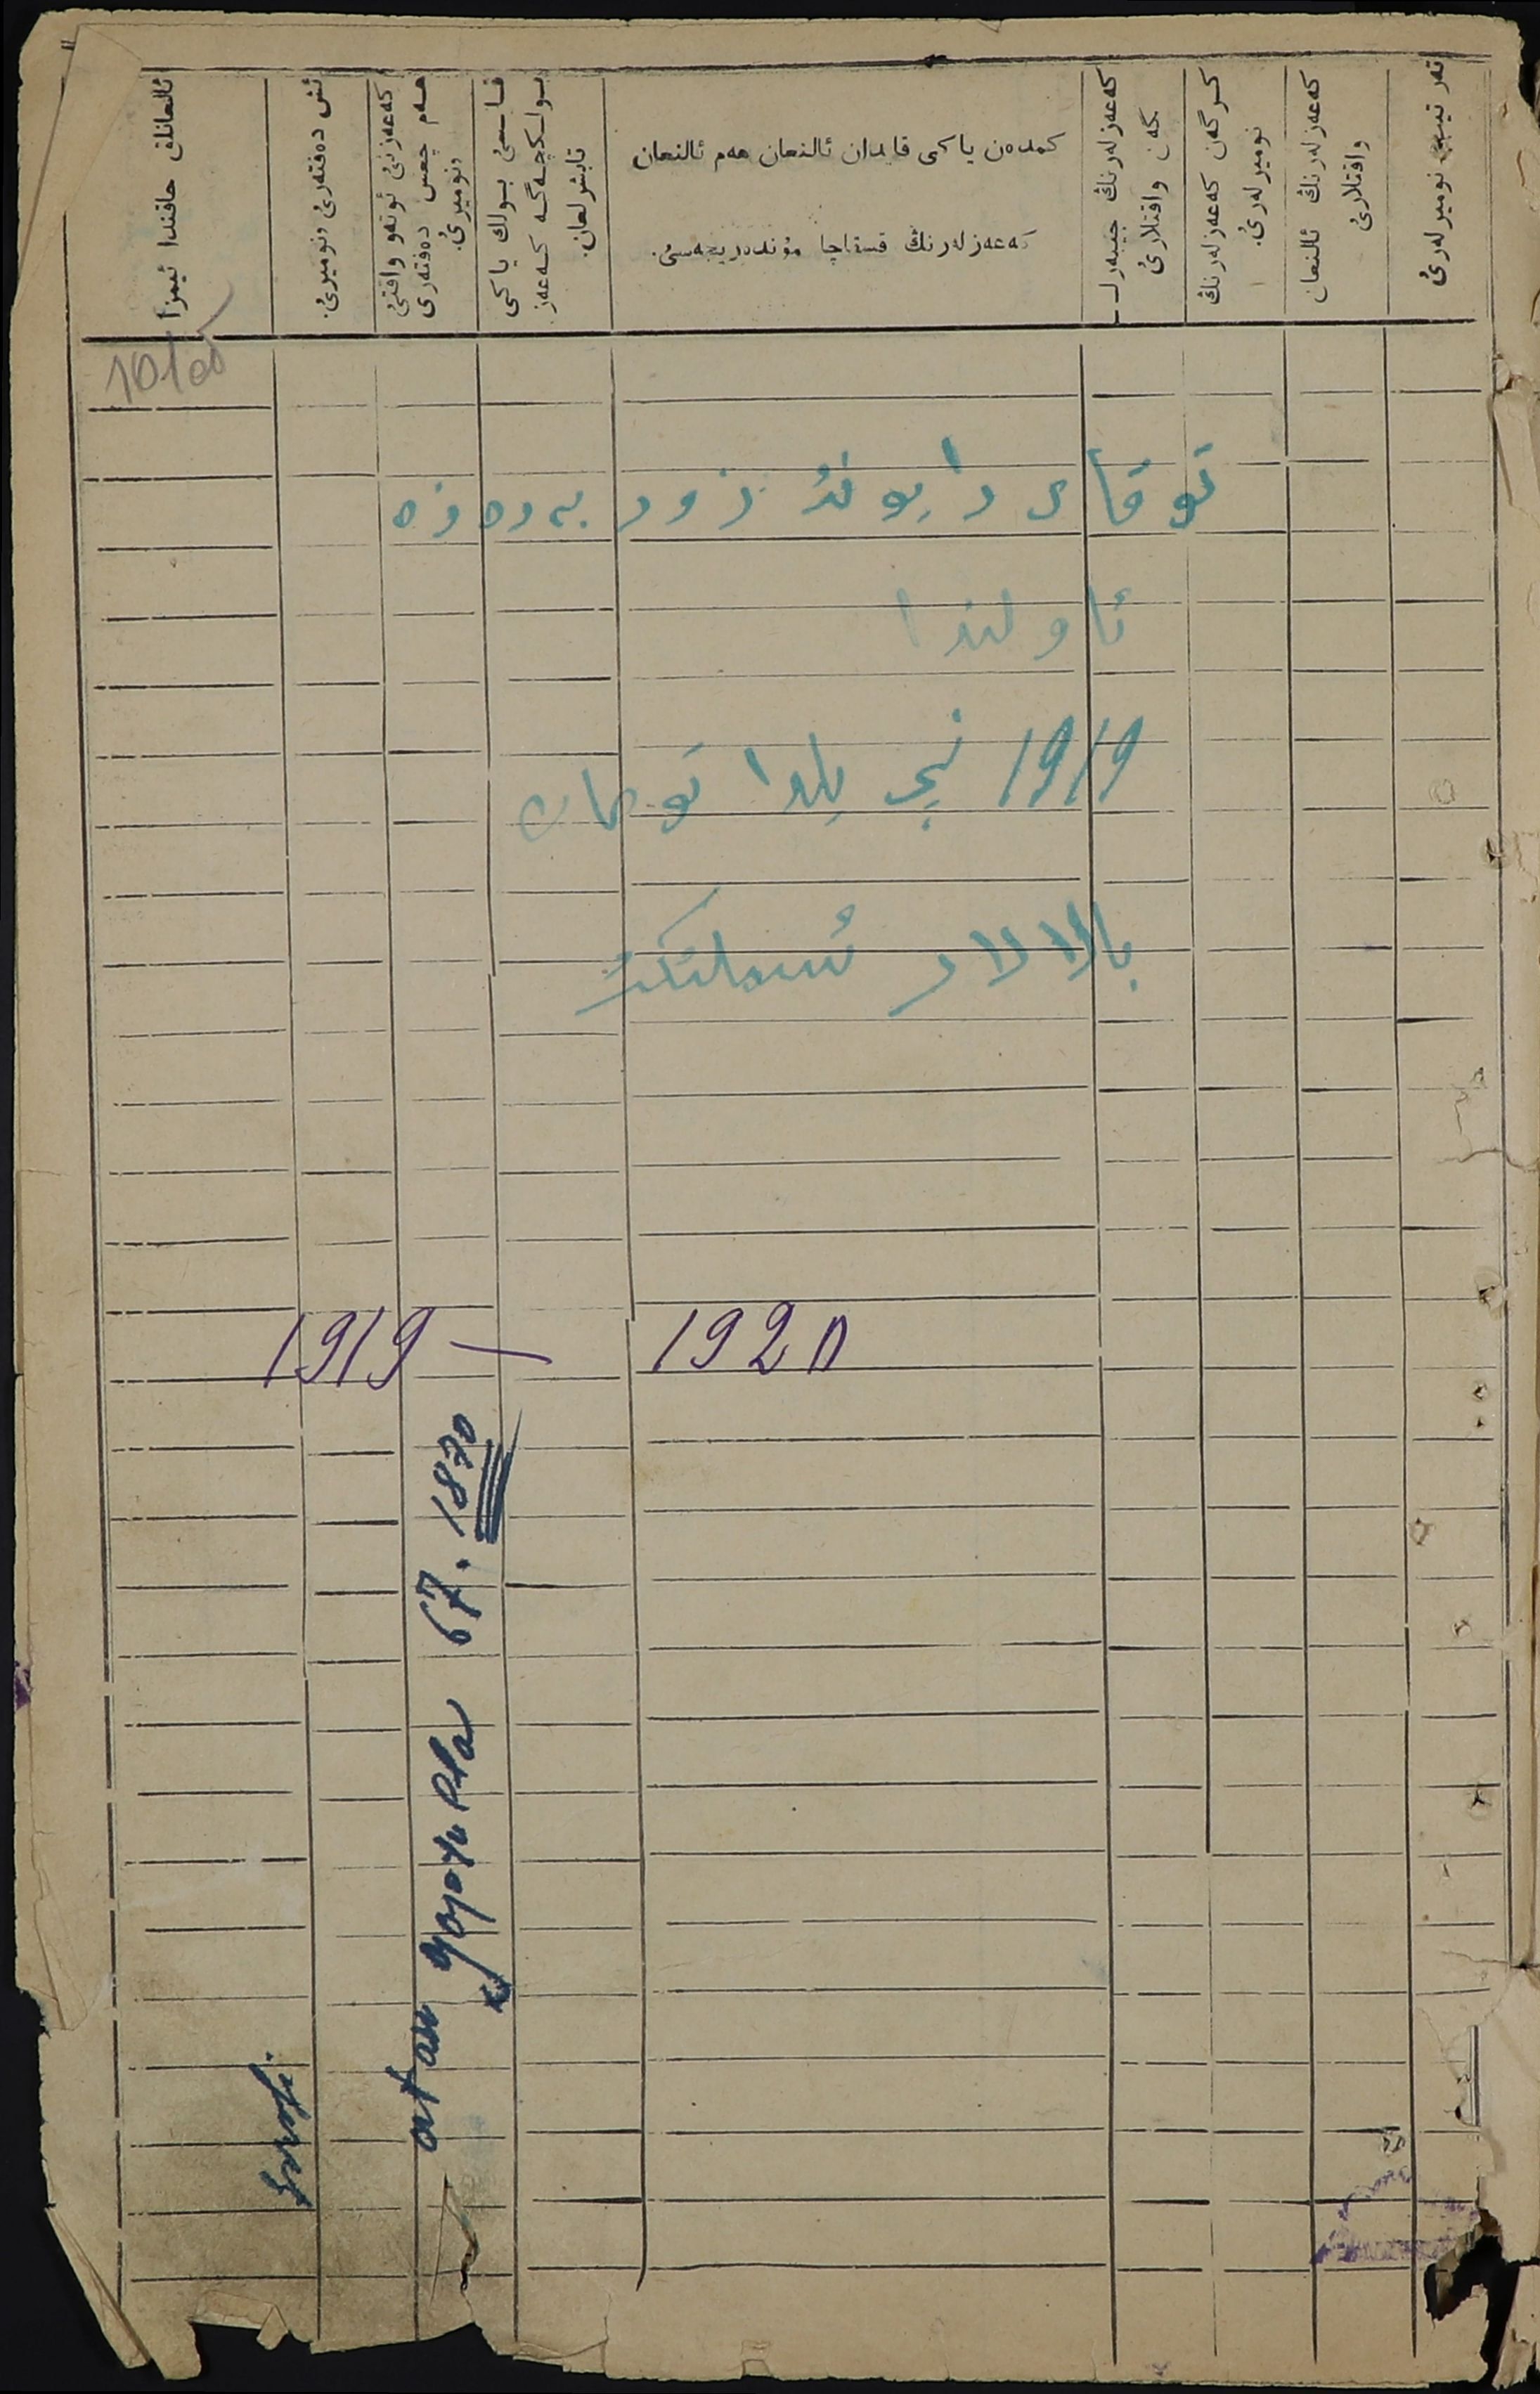 تەرتیب نومیرلەرئ
كەعەزلەرنڭ ئالنعان
واقتلارئ
كرگەن كەعەزلەرنڭ
نومیرلەرئ.
كەعەزلەرنڭ جیبەرل-
گەن واقتلارئ
كمدەن یاكی قایدان ئالنعان هەم ئالنعان
كەعەزلەرنڭ قسقاچا مۇندەریجەسئ.
قایسئ بولك یاكی
بولكچەگە كەعەز
تابشرلعان.
كەعەزنئ ئوتەو واقتئ
هەم چعس دەفتەرئ
نومیرئ.
ئش دەفتەرئ نومیرئ.
ئالعانلق حاقندا ئیمزا
توقای رایونئ زور بەرەزە
ئاولندا
1919 نچی یلدا توعان
بالالار ئسملئكئ
1919 — 1920
67. 1870